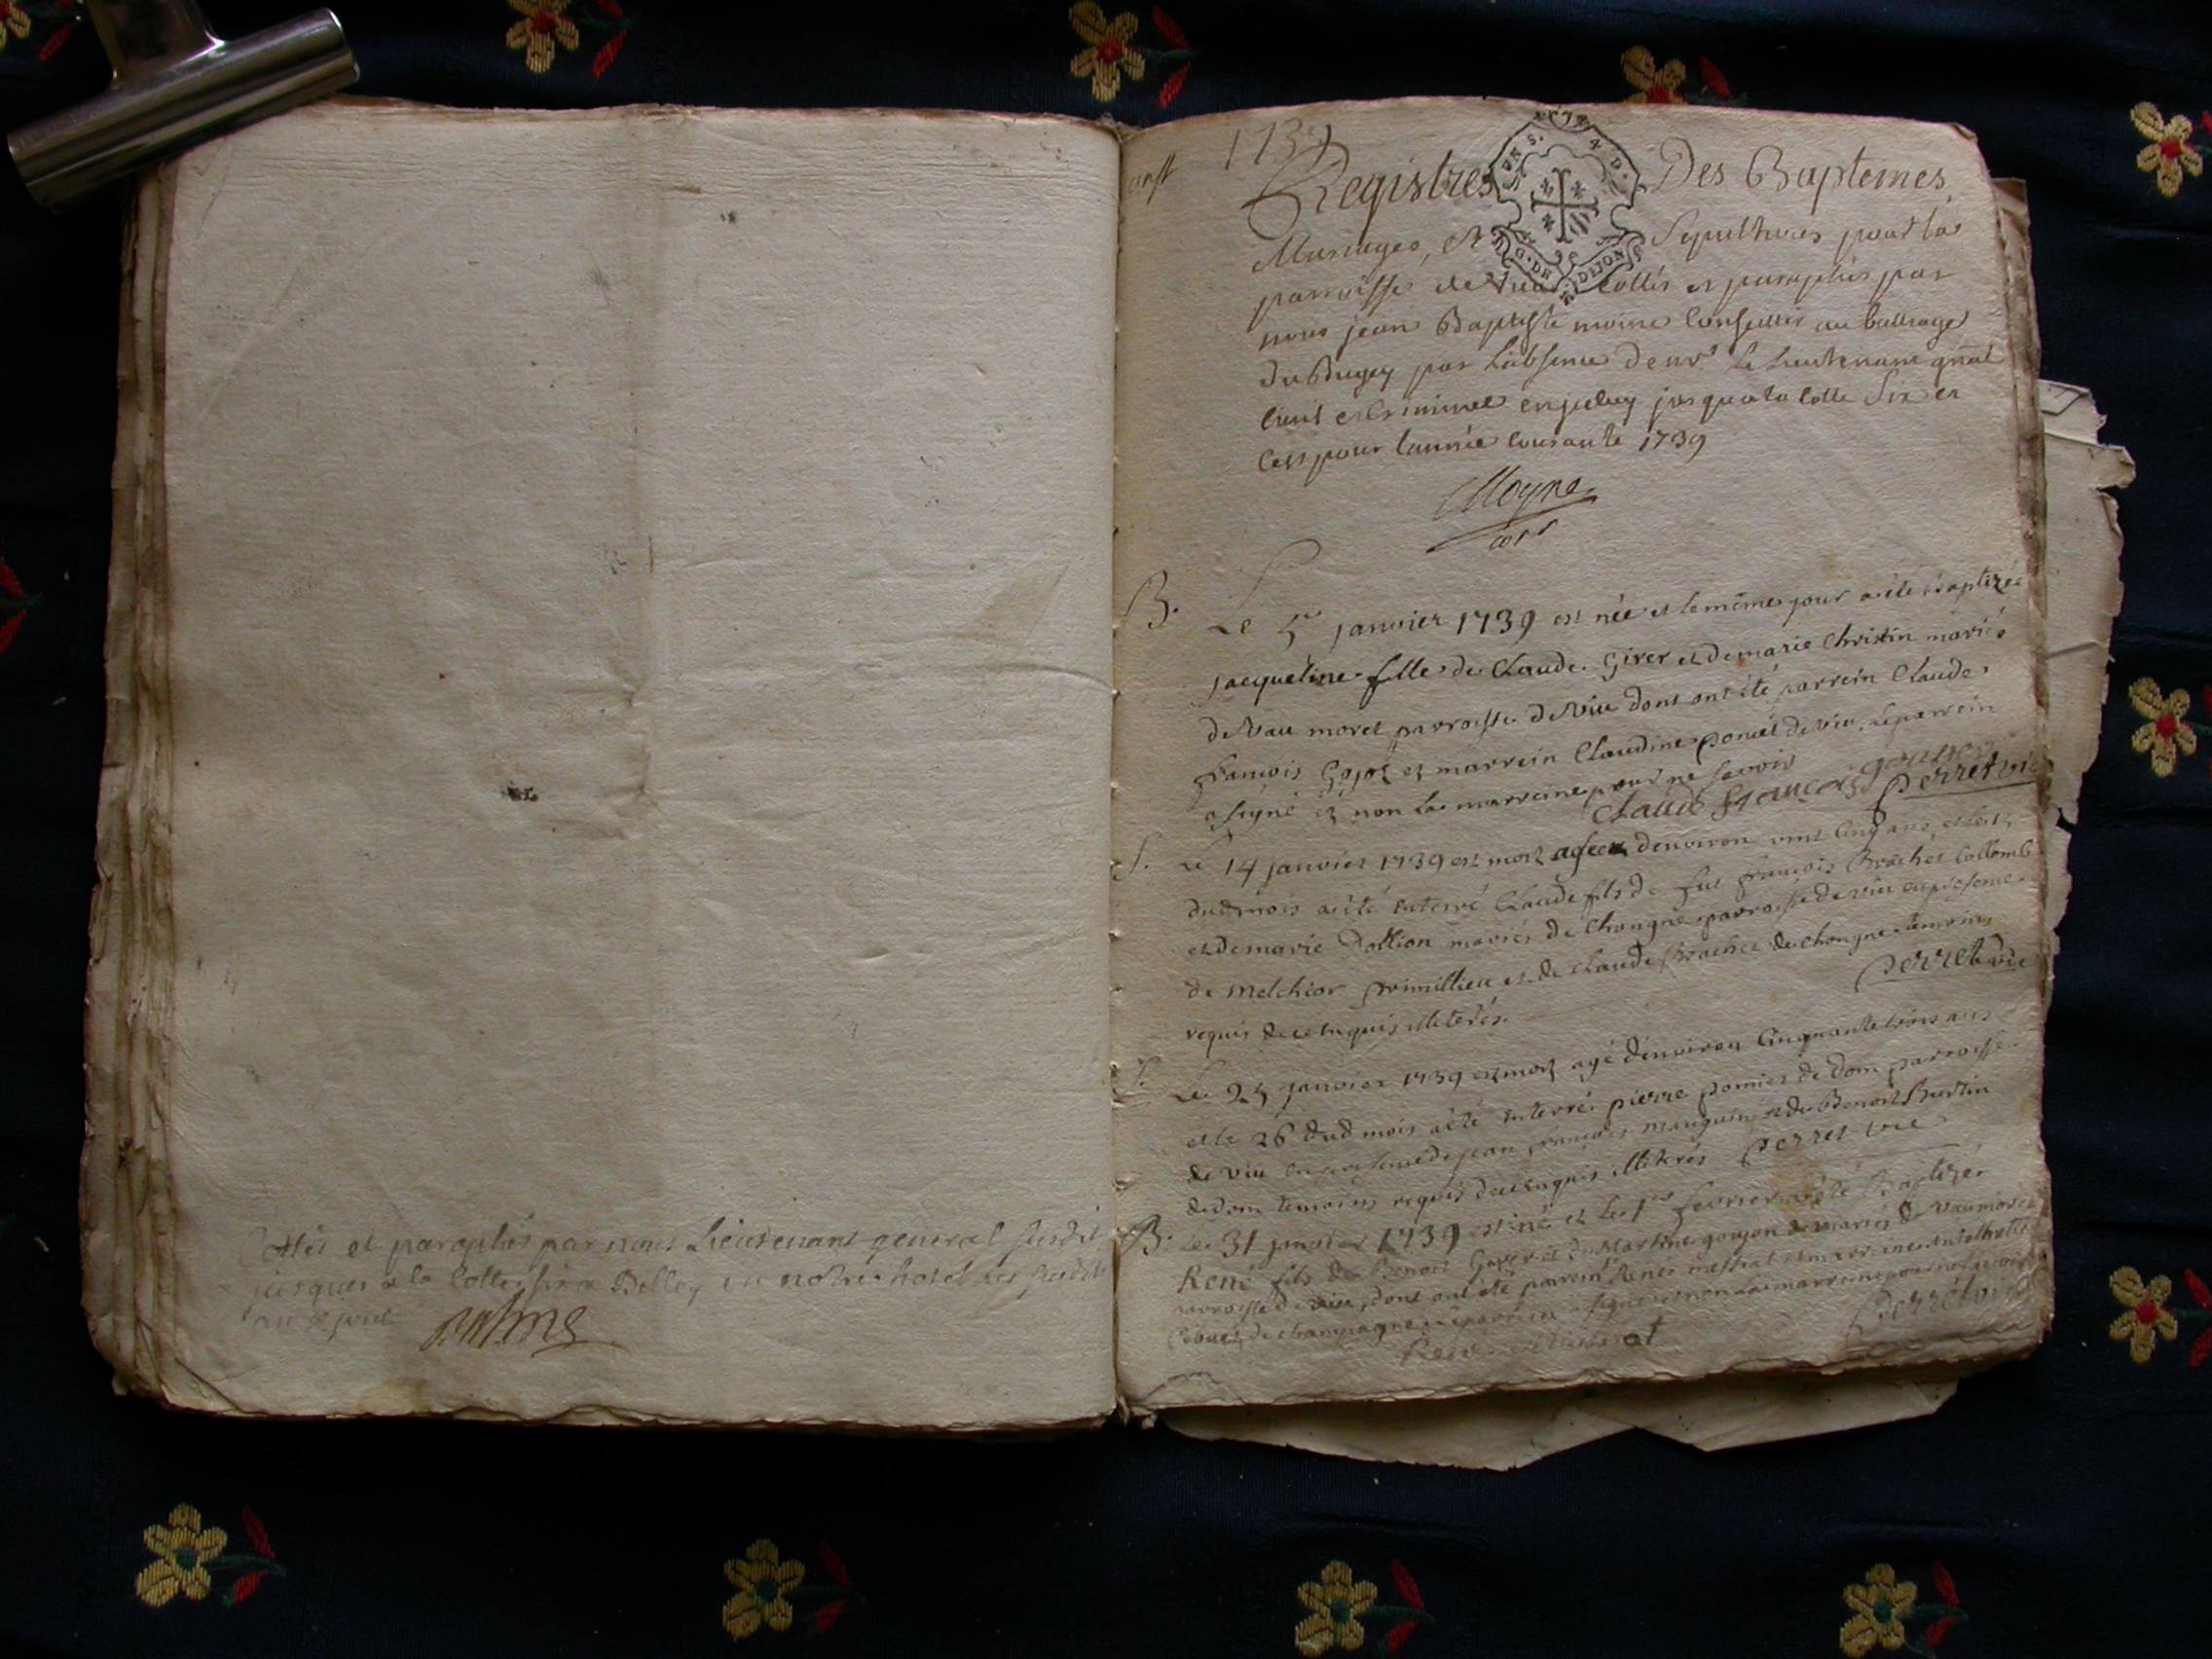 Cottés et paraphés par nous Lieutenant general susdit
jusques a la cotte six a Belley en notre hotel les susdits
an et jour
1739
Registres Des Baptemes
UN S. 4 D.
G. DE DIJON
Mariages, et Sepultures pour la
parroisse de Vieu cottés et paraphés par
nous jean Baptiste moine Conseiller au balliage
du Bugey par l'absence de mr le Lieutenant gnal
Civil et Criminel en jusqu'a la cotte Six et
c'est pour l'année courante 1739
Moyne
B.
Le 5e janvier 1739 est née et le même jour a été baptizée
jacqueline fille de Claude Girer et de marie Christin mariés
de Vau moret parroisse de Viu dont ont été parrein Claude
francois Gojoz et marrein Claudine poncet de viu, le parrein
a signé et non la marreine pour ne savoir
Claude françois
perret vic
S. Le 14 janvier 1739 est mort agé d'environ vint cinq ans et le 15
dud mois a été enterré Claude fils de feu françois Brachet Collomb
et de marie Dollion mariés de Chongne parroisse de viu en presence
de melchior primillieu et de Claude Brachet de chongne temoins
requis de ce enquis illeterés.
perret vic
S. Le 25 janvier 1739 est mort agé d'environ Cinquante trois ans
et le 26 dud mois a été enterré pierre pomier de dom parroisse
de viu en presence de jean françois manguin et de Benoit Burtin
de dom temoins requis de ce enquis illiterés perret vic
B. Le 31 janvier 1739 est né et le 1er fevrier a été Baptizé
René fils de Benoit et de Martine goujon mariés de Vaumoret
parroisse de viu, dont ont été parrein René messiat et marreine
de champagne le parrein a signé et non la marreine pour ne savoir
René messiat
perret vic